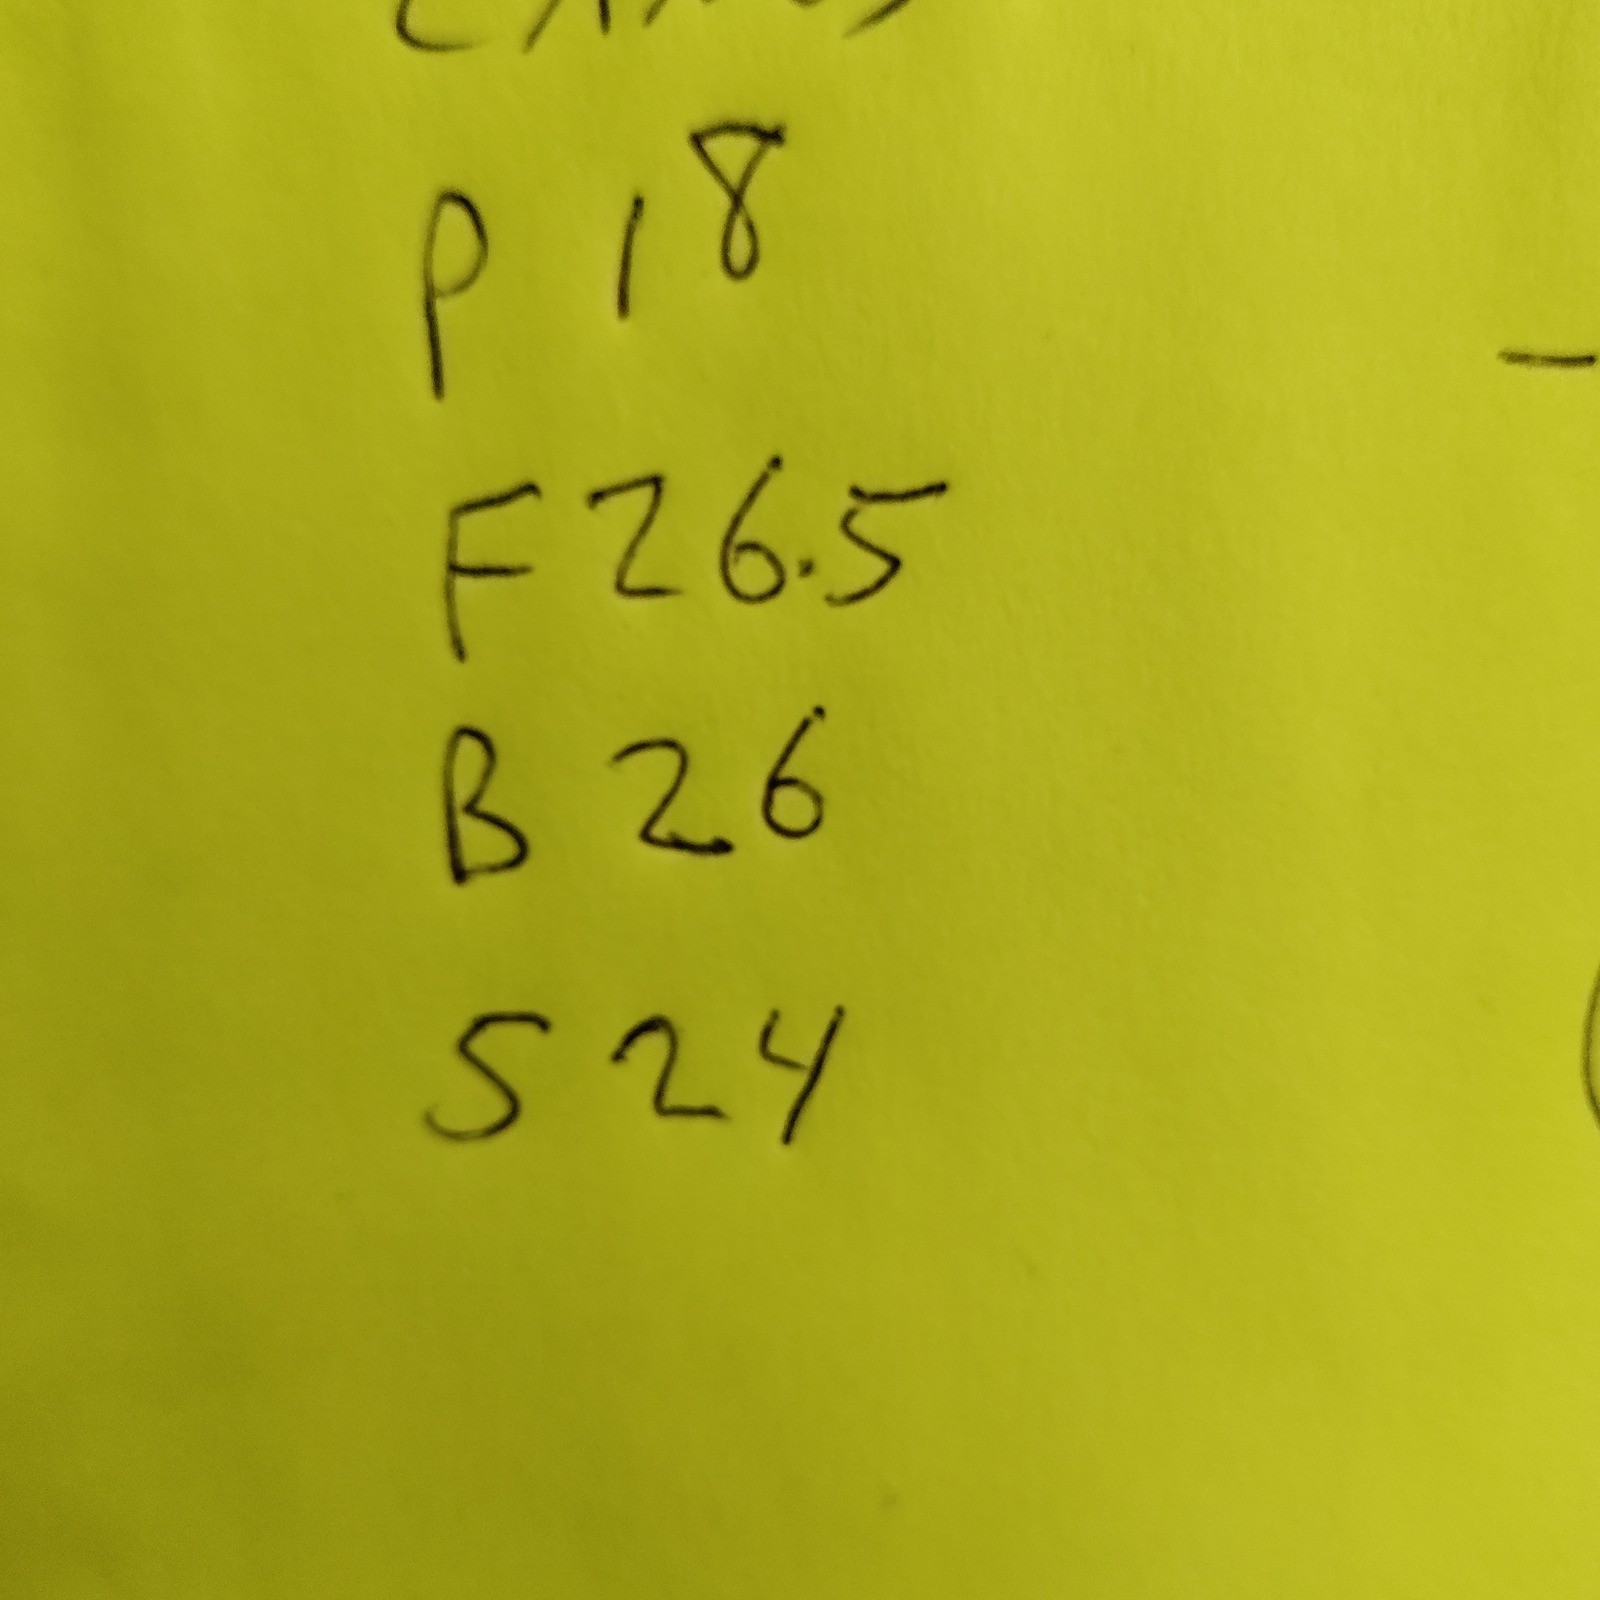 P 18
F 26.5
B 26
S 24